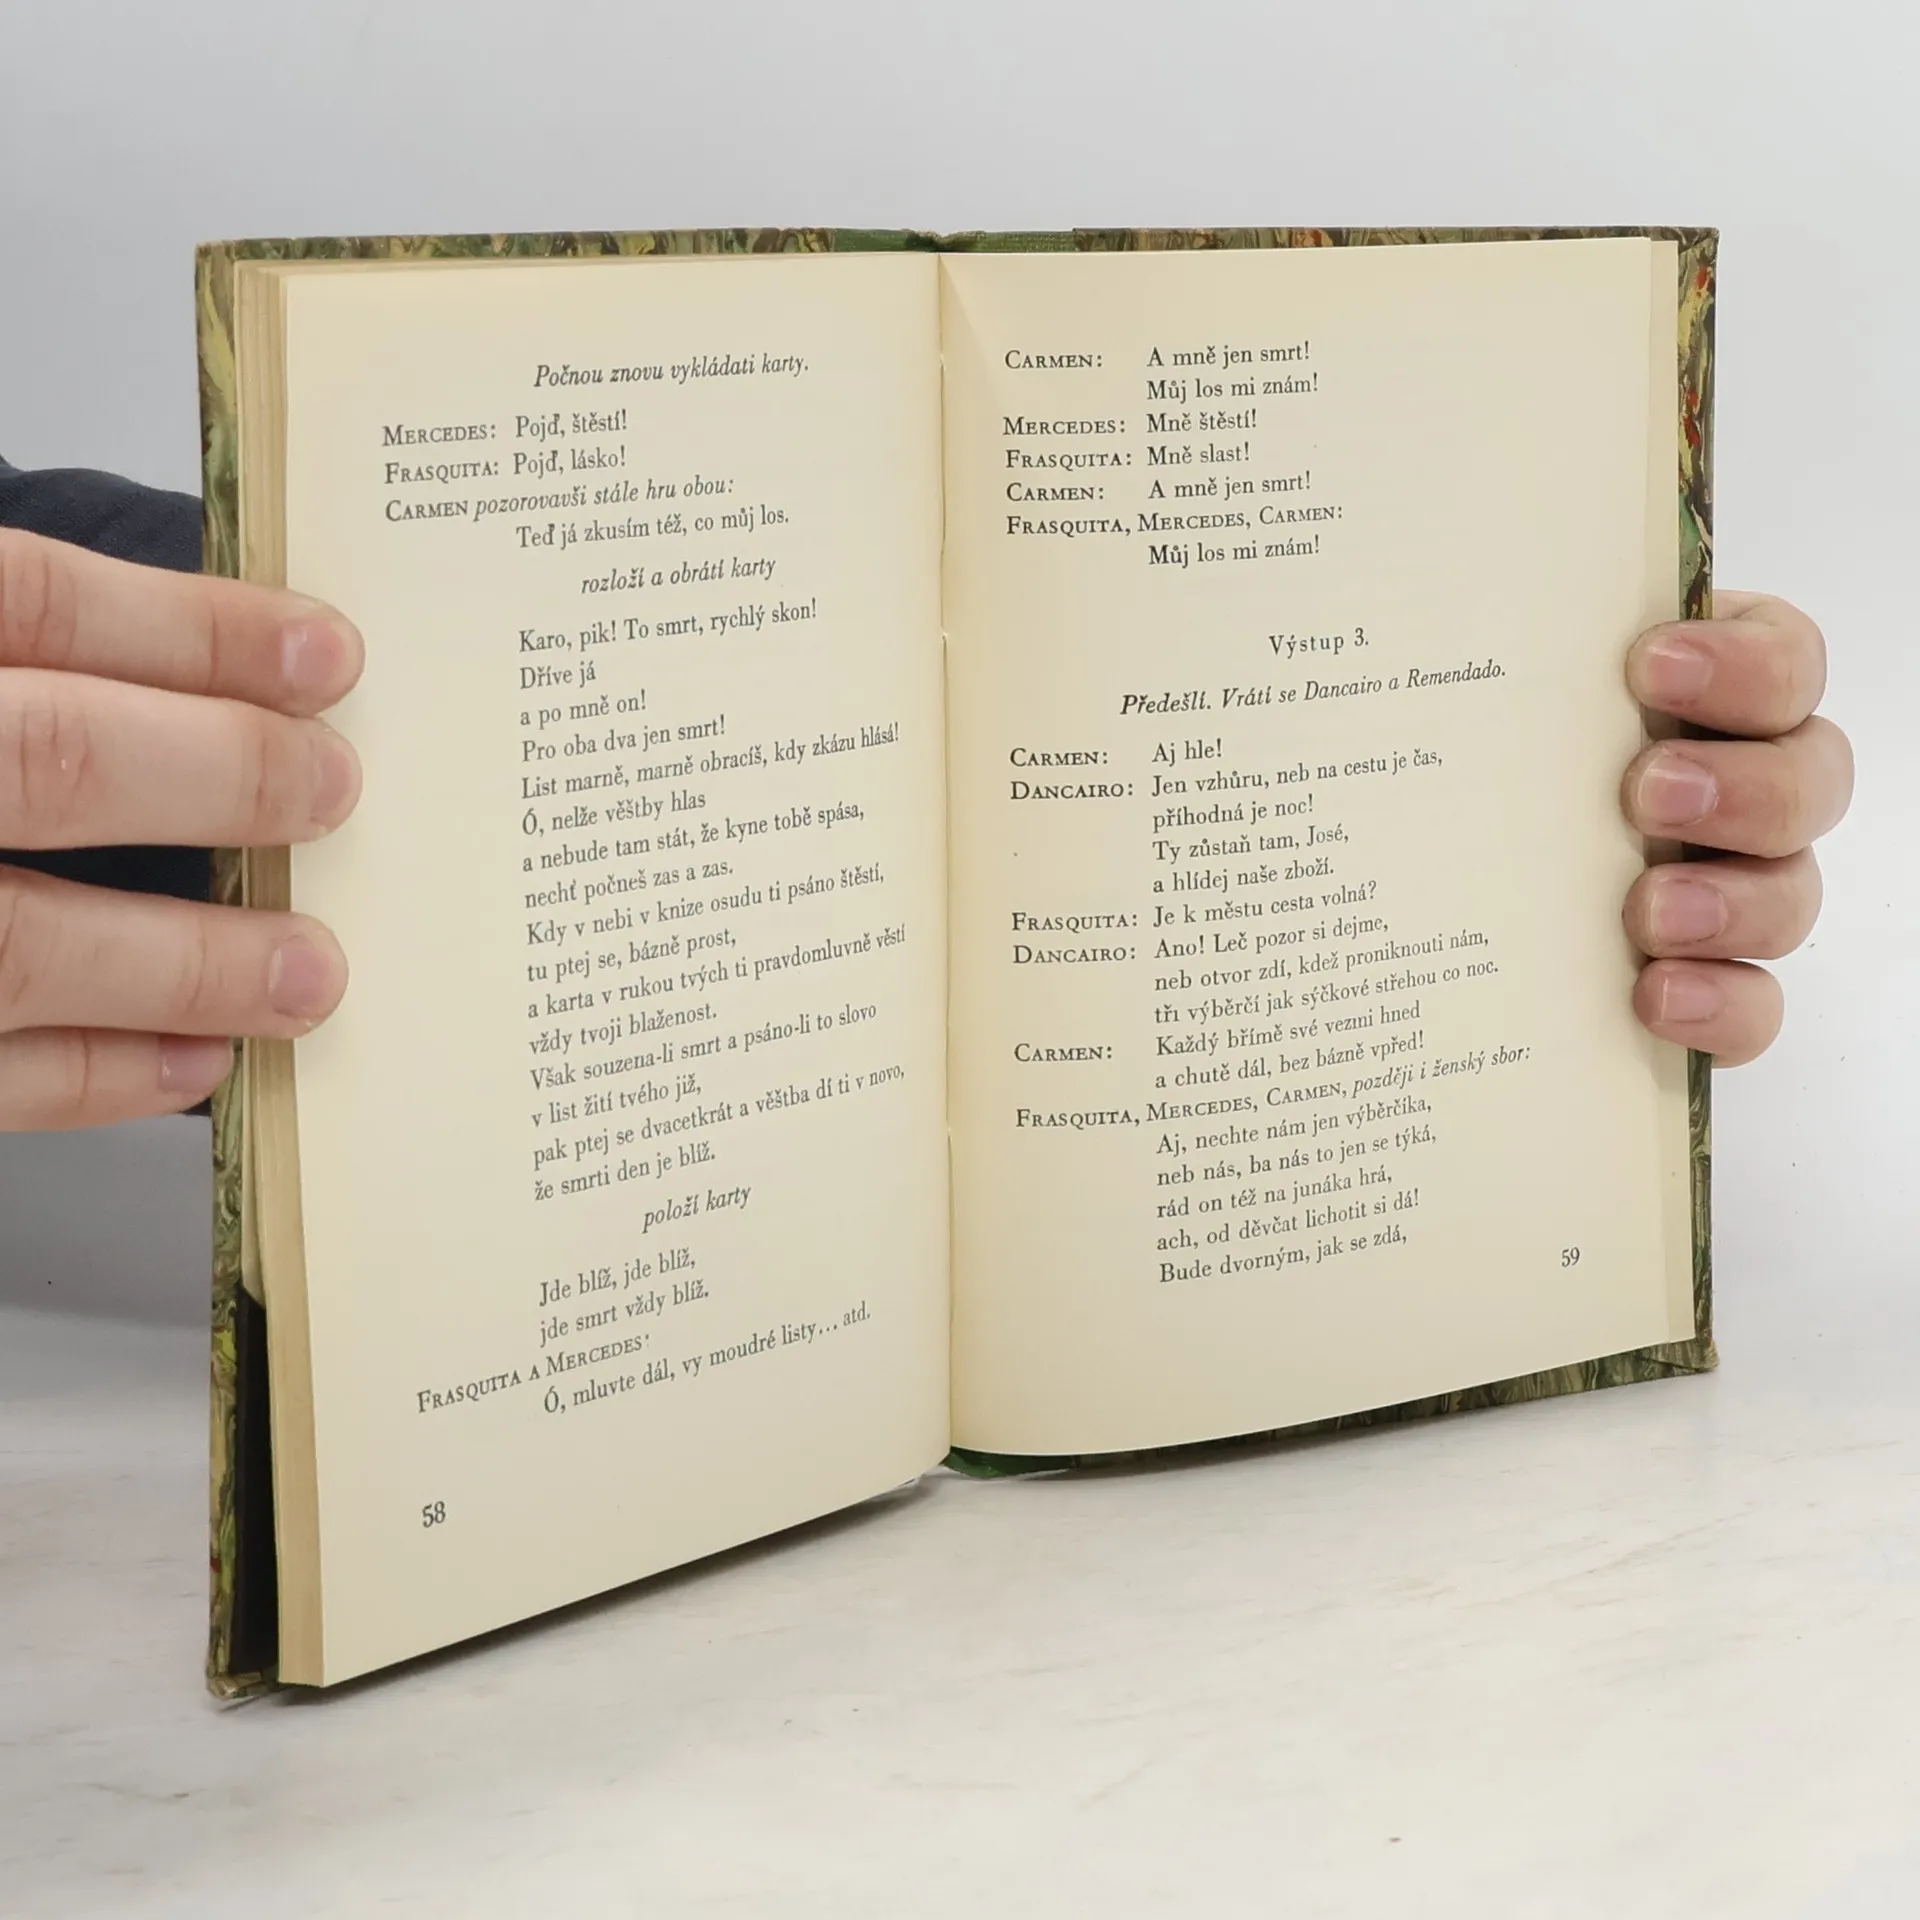 Počnou znovu vykládati karty.
MERCEDES: Pojď, štěstí!
FRASQUITA: Pojď, lásko!
CARMEN pozorovavši stále hru obou:
Teď já zkusím též, co můj los.
rozloží a obrátí karty
Karo, pik! To smrt, rychlý skon!
Dříve já
a po mně on!
Pro oba dva jen smrt!
List marně, marně obracíš, kdy zkázu hlásá!
Ó, nelže věštby hlas
a nebude tam stát, že kyne tobě spása,
nechť počneš zas a zas.
Kdy v nebi v knize osudu ti psáno štěstí,
tu ptej se, bázně prost,
a karta v rukou tvých ti pravdomluvně věstí
vždy tvoji blaženost.
Však souzena-li smrt a psáno-li to slovo
v list žití tvého již,
pak ptej se dvacetkrát a věštba dí ti v novo,
že smrti den je blíž.
položí karty
Jde blíž, jde blíž,
jde smrt vždy blíž.
FRASQUITA A MERCEDES:
Ó, mluvte dál, vy moudré listy... atd.
58
CARMEN: A mně jen smrt!
Můj los mi znám!
MERCEDES: Mně štěstí!
FRASQUITA: Mně slast!
CARMEN: A mně jen smrt!
FRASQUITA, MERCEDES, CARMEN:
Můj los mi znám!
Výstup 3.
Předešlí. Vrátí se Dancairo a Remendado.
CARMEN: Aj hle!
DANCAIRO: Jen vzhůru, neb na cestu je čas,
příhodná je noc!
Ty zůstaň tam, José,
a hlídej naše zboží.
FRASQUITA: Je k městu cesta volná?
DANCAIRO: Ano! Leč pozor si dejme,
neb otvor zdí, kdež proniknouti nám,
tři výběrčí jak sýčkové střehou co noc.
CARMEN: Každý břímě své vezmi hned
a chutě dál, bez bázně vpřed!
FRASQUITA, MERCEDES, CARMEN, později i ženský sbor:
Aj, nechte nám jen výběrčíka,
neb nás, ba nás to jen se týká,
rád on též na junáka hrá,
ach, od děvčat lichotit si dá!
Bude dvorným, jak se zdá,
59